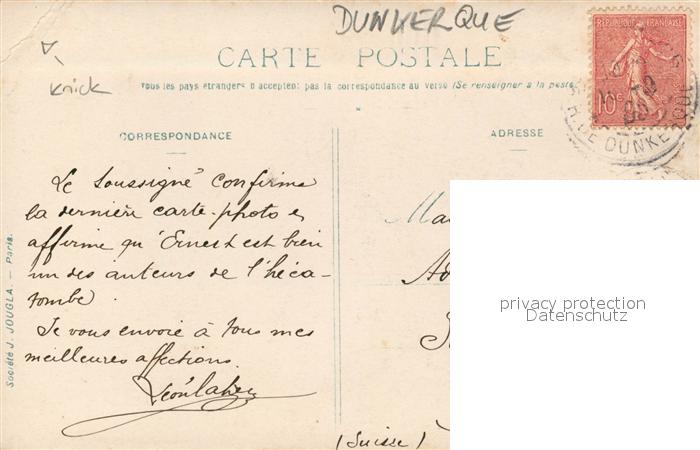 DUNKERQUE
Knick
CARTE POSTALE
Tous les pays étrangers n'acceptent pas la correspondance au verso (Se renseigner à la poste
RÉPUBLIQUE FRANÇAISE
10c
R. DE DUNKERQUE
CORRESPONDANCE
ADRESSE
Le Soussigné confirme
la dernière carte-photo et
affirme qu'Ernest est bien
un des auteurs de l'héca-
tombe.
Je vous envoie à tous mes
meilleures affections.
Société J. JOUGLA. — Paris.
(Suisse)
privacy protection
Datenschutz